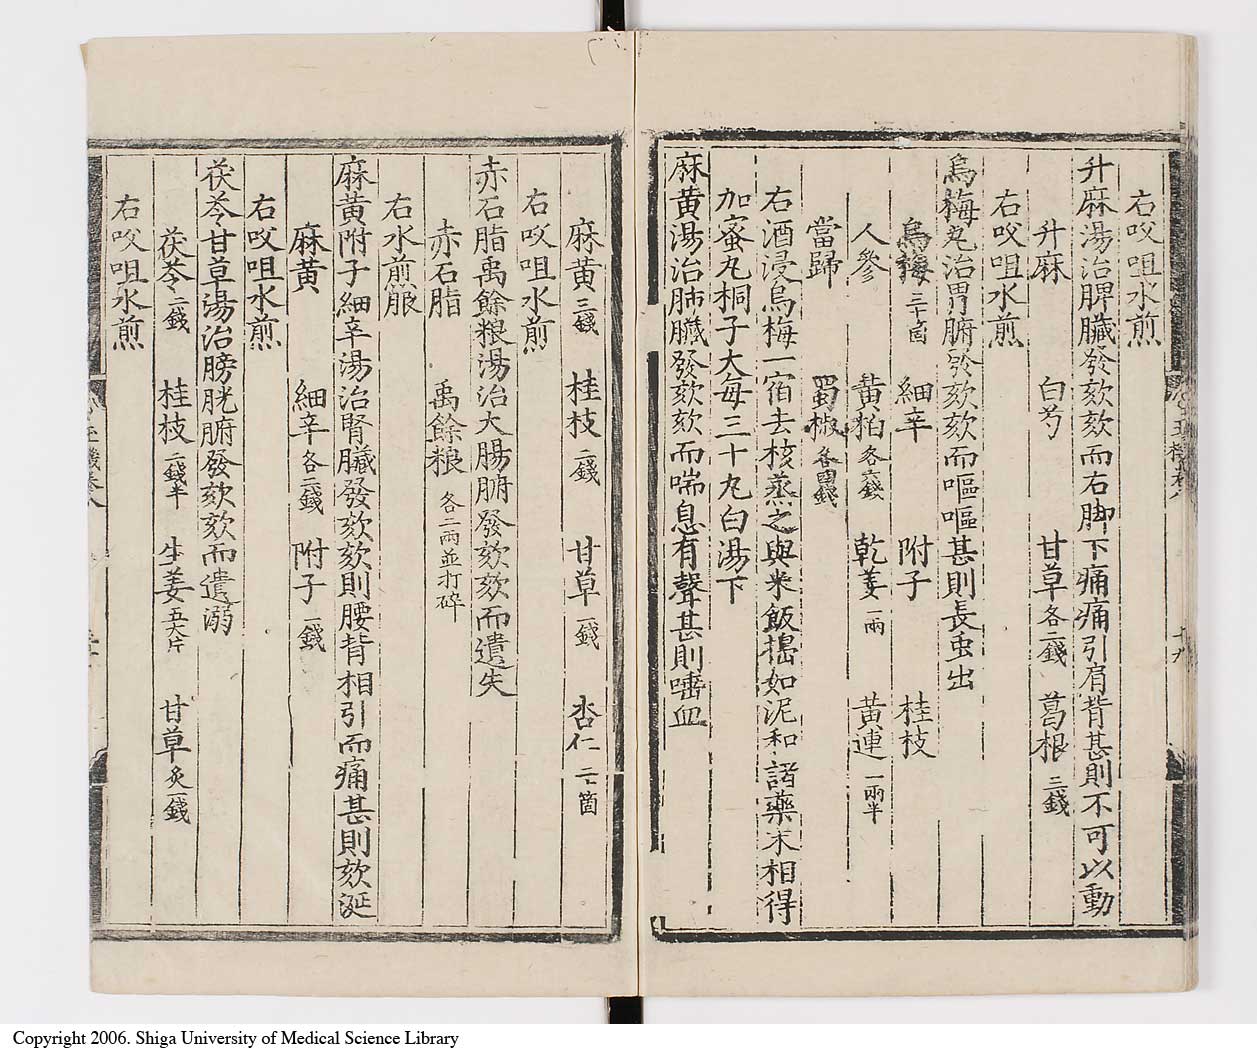 右㕮咀水煎
升麻湯治脾臟發欬欬而右脚下痛痛引肩背甚則不可以動
升麻 白芍 甘草各二錢 葛根三錢
右㕮咀水煎
烏梅丸治胃腑發欬欬而嘔嘔甚則長虫出
烏梅三十箇 細辛 附子 桂枝
人參 黄栢各六錢 乾姜一兩 黄連一兩半
當歸 蜀椒各四錢
右酒浸烏梅一宿去核蒸之與米飯搗如泥和諸藥末相得
加蜜丸桐子大每三十丸白湯下
麻黄湯治肺臟發欬欬而喘息有聲甚則唾血
麻黄三錢 桂枝二錢 甘草一錢 杏仁二十箇
右㕮咀水煎
赤石脂禹餘粮湯治大腸腑發欬欬而遺失
赤石脂 禹餘粮各二兩並打碎
右水煎服
麻黄附子細辛湯治腎臟發欬欬則腰背相引而痛甚則欬涎
麻黄 細辛各二錢 附子一錢
右㕮咀水煎
茯苓甘草湯治膀胱腑發欬欬而遺溺
茯苓二錢 桂枝二錢半 生姜五大片 甘草炙一錢
右㕮咀水煎
Copyright 2006. Shiga University of Medical Science Library